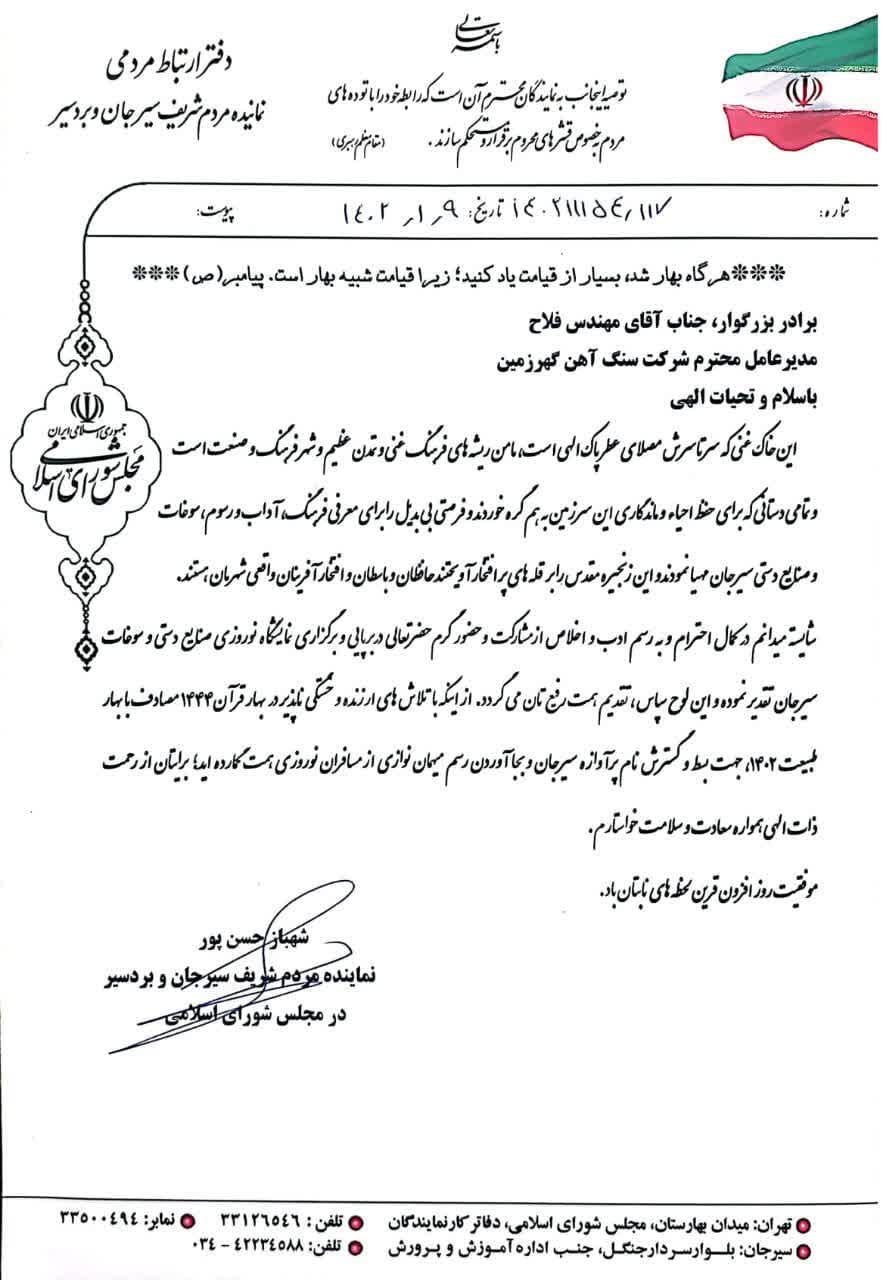 باسمه تعالی
دفتر ارتباط مردمی
نماینده مردم شریف سیرجان و بردسیر
توصیه اینجانب به نمایندگان محترم آن است که رابطه خود را با توده های
مردم به خصوص قشرهای محروم برقرار و مستحکم سازند. (مقام معظم رهبری)
شماره: ۱۴۰۲۱۱۱۵۴/۱۱۷ تاریخ: ۱۴۰۲/۱/۹ پیوست:
***هر گاه بهار شد، بسیار از قیامت یاد کنید؛ زیرا قیامت شبیه بهار است. پیامبر(ص)***
برادر بزرگوار، جناب آقای مهندس فلاح
مدیرعامل محترم شرکت سنگ آهن گهرزمین
باسلام و تحیات الهی
جمهوری اسلامی ایران
مجلس شورای اسلامی
این خاک غنی که سرتاسرش مصلای عطر پاک الهی است، مامن ریشه های فرهنگ غنی و تمدن عظیم و شهر فرهنگ و صنعت است
و تمامی دستانی که برای حفظ احیاء و ماندگاری این سرزمین به هم گره خوردند و فرصتی بی بدیل را برای معرفی فرهنگ، آداب و رسوم، سوغات
و صنایع دستی سیرجان مهیا نمودند و این زنجیره مقدس را بر قله های پر افتخار آویختند حافظان و باسطان و افتخار آفرینان واقعی شهرمان هستند.
شایسته میدانم در کمال احترام و به رسم ادب و اخلاص از مشارکت و حضور گرم حضرتعالی در برپایی و برگزاری نمایشگاه نوروزی صنایع دستی و سوغات
سیرجان تقدیر نموده و این لوح سپاس، تقدیم همت رفیع تان می گردد. از اینکه با تلاش های ارزنده و خستگی ناپذیر در بهار قرآن ۱۴۴۴ مصادف با بهار
طبیعت ۱۴۰۲، جهت بسط و گسترش نام پرآوازه سیرجان و بجا آوردن رسم میهمان نوازی از مسافران نوروزی همت گمارده اید؛ برایتان از رحمت
ذات الهی همواره سعادت و سلامت خواستارم.
موفقیت روز افزون قرین لحظه های نابتان باد.
شهباز حسن پور
نماینده مردم شریف سیرجان و بردسیر
در مجلس شورای اسلامی
تهران: میدان بهارستان، مجلس شورای اسلامی، دفاتر کار نمایندگان تلفن: ۳۳۱۲۶۵۴۶ نمابر: ۳۳۵۰۰۴۹۴
سیرجان: بلوار سردار جنگل، جنب اداره آموزش و پرورش تلفن: ۴۲۲۳۴۵۸۸ - ۰۳۴